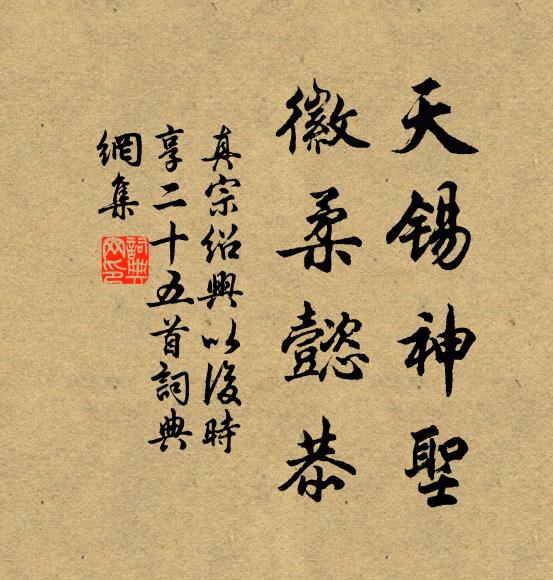 天錫神聖
徽柔懿恭
真宗紹興以後時
享二十五首詞典
網集
詞典網印